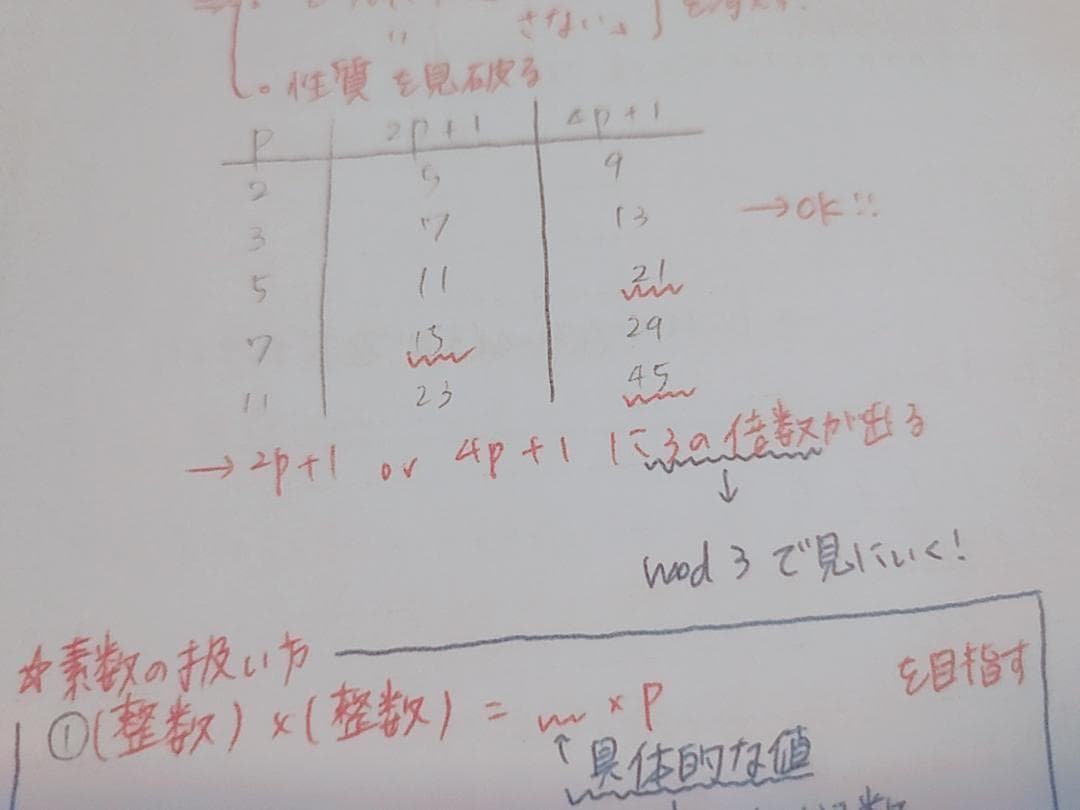 〃 さない。
・性質を見破る
P 2P+1 4P+1
2 5 9
3 7 13 →OK!!
5 11 21
7 15 29
11 23 45
→2P+1 or 4P+1 に3の倍数が出る
↓
mod 3 で見にいく!
☆素数の扱い方
①(整数)×(整数) = 〰×P を目指す
↑具体的な値